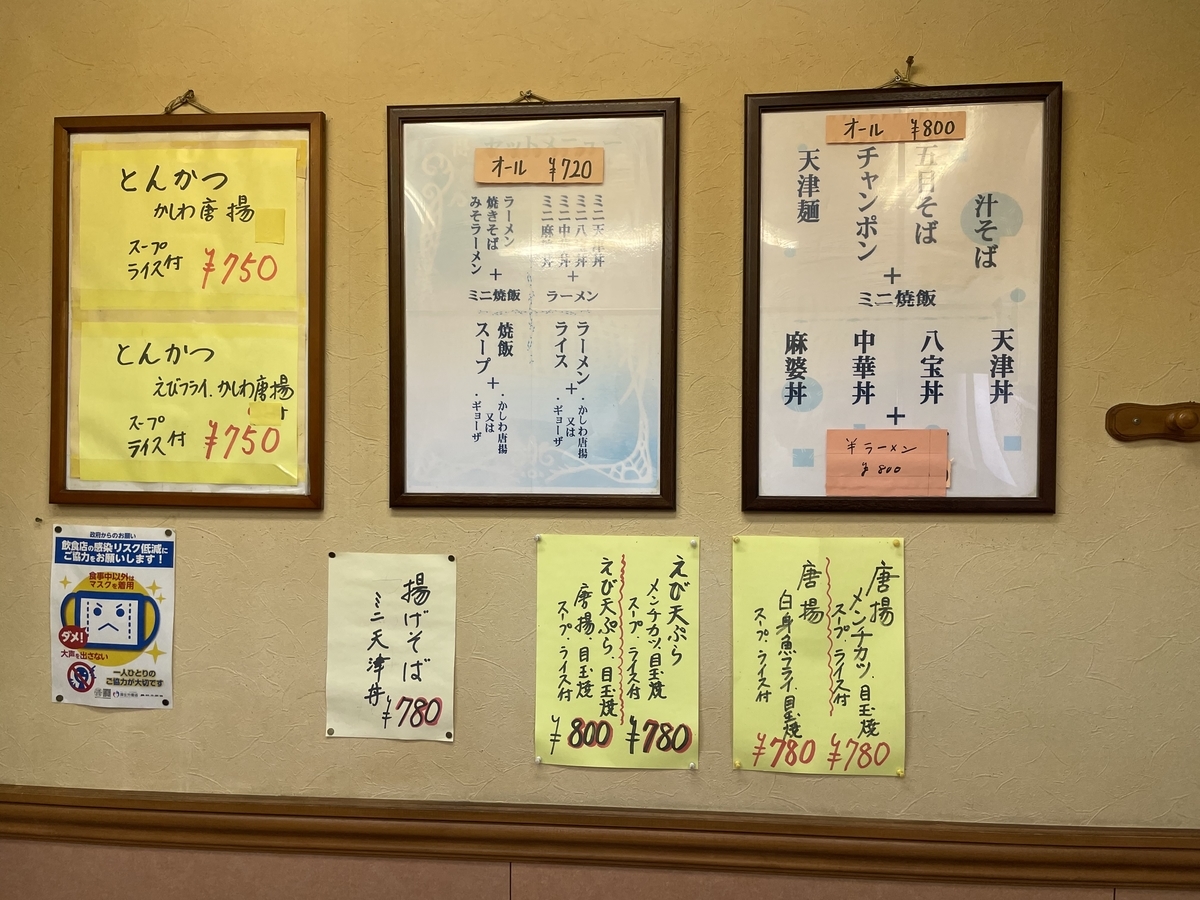 とんかつ
かしわ唐揚
スープ
ライス付
¥750
とんかつ
えびフライ.かしわ唐揚
スープ
ライス付
¥750
セットメニュー
オール ¥720
ミニ天津丼
ミニ八
ミニ中
ミニ麻
+
ラーメン
ラーメン
焼きそば
みそラーメン
+
ミニ焼飯
ラーメン
ライス
+
・かしわ唐揚
又は
・ギョーザ
焼飯
スープ
+
・かしわ唐揚
又は
・ギョーザ
オール ¥800
汁そば
五目そば
チャンポン
天津麺
+
ミニ焼飯
天津丼
八宝丼
中華丼
麻婆丼
+
半ラーメン
¥800
政府からのお願い
飲食店の感染リスク低減に
ご協力をお願いします!
食事中以外は
マスクを着用
ダメ!
大声を出さない
一人ひとりの
ご協力が大切です
揚げそば
ミニ天津丼
¥780
えび天ぷら
メンチカツ.目玉焼
スープ.ライス付
¥780
えび天ぷら.目玉焼
唐揚.目玉焼
スープ.ライス付
¥800
唐揚
メンチカツ.目玉焼
スープ.ライス付
¥780
唐揚
白身魚フライ.目玉焼
スープ.ライス付
¥780